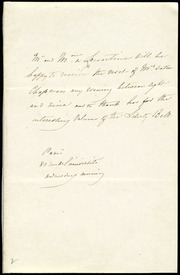 Mr and Mme de Lamartine will be
happy to receive the visit of Mrs
Chapman any evening between eight
and nine and to thank her for the
interesting volume of the Liberty Bell
Paris
wednesday morning